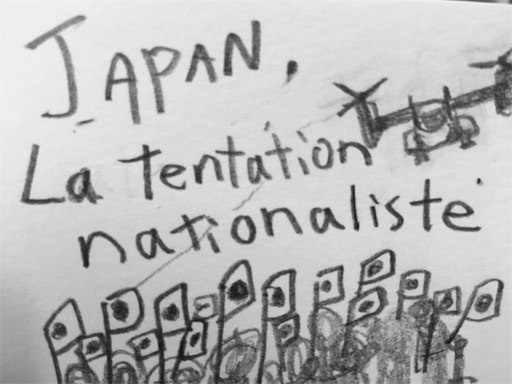 JAPAN,
La tentation
nationaliste